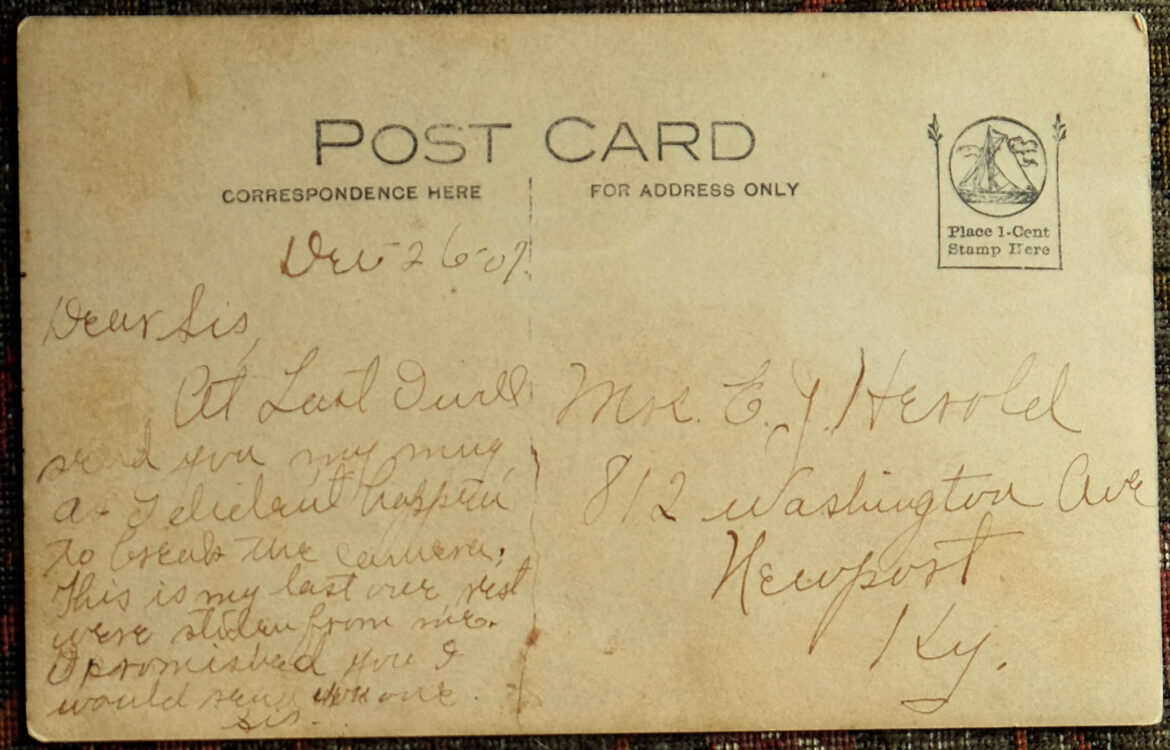 POST CARD
CORRESPONDENCE HERE
FOR ADDRESS ONLY
Place 1-Cent
Stamp Here
Dec 26-07.
Dear Sis,
At Last I will
send you my mug
as I dident happen
to break the camera,
This is my last one rest
were stolen from me.
I promised you I
would send you one
sis.
Mrs. E. J. Herold
812 Washington Ave
Newport
Ky.